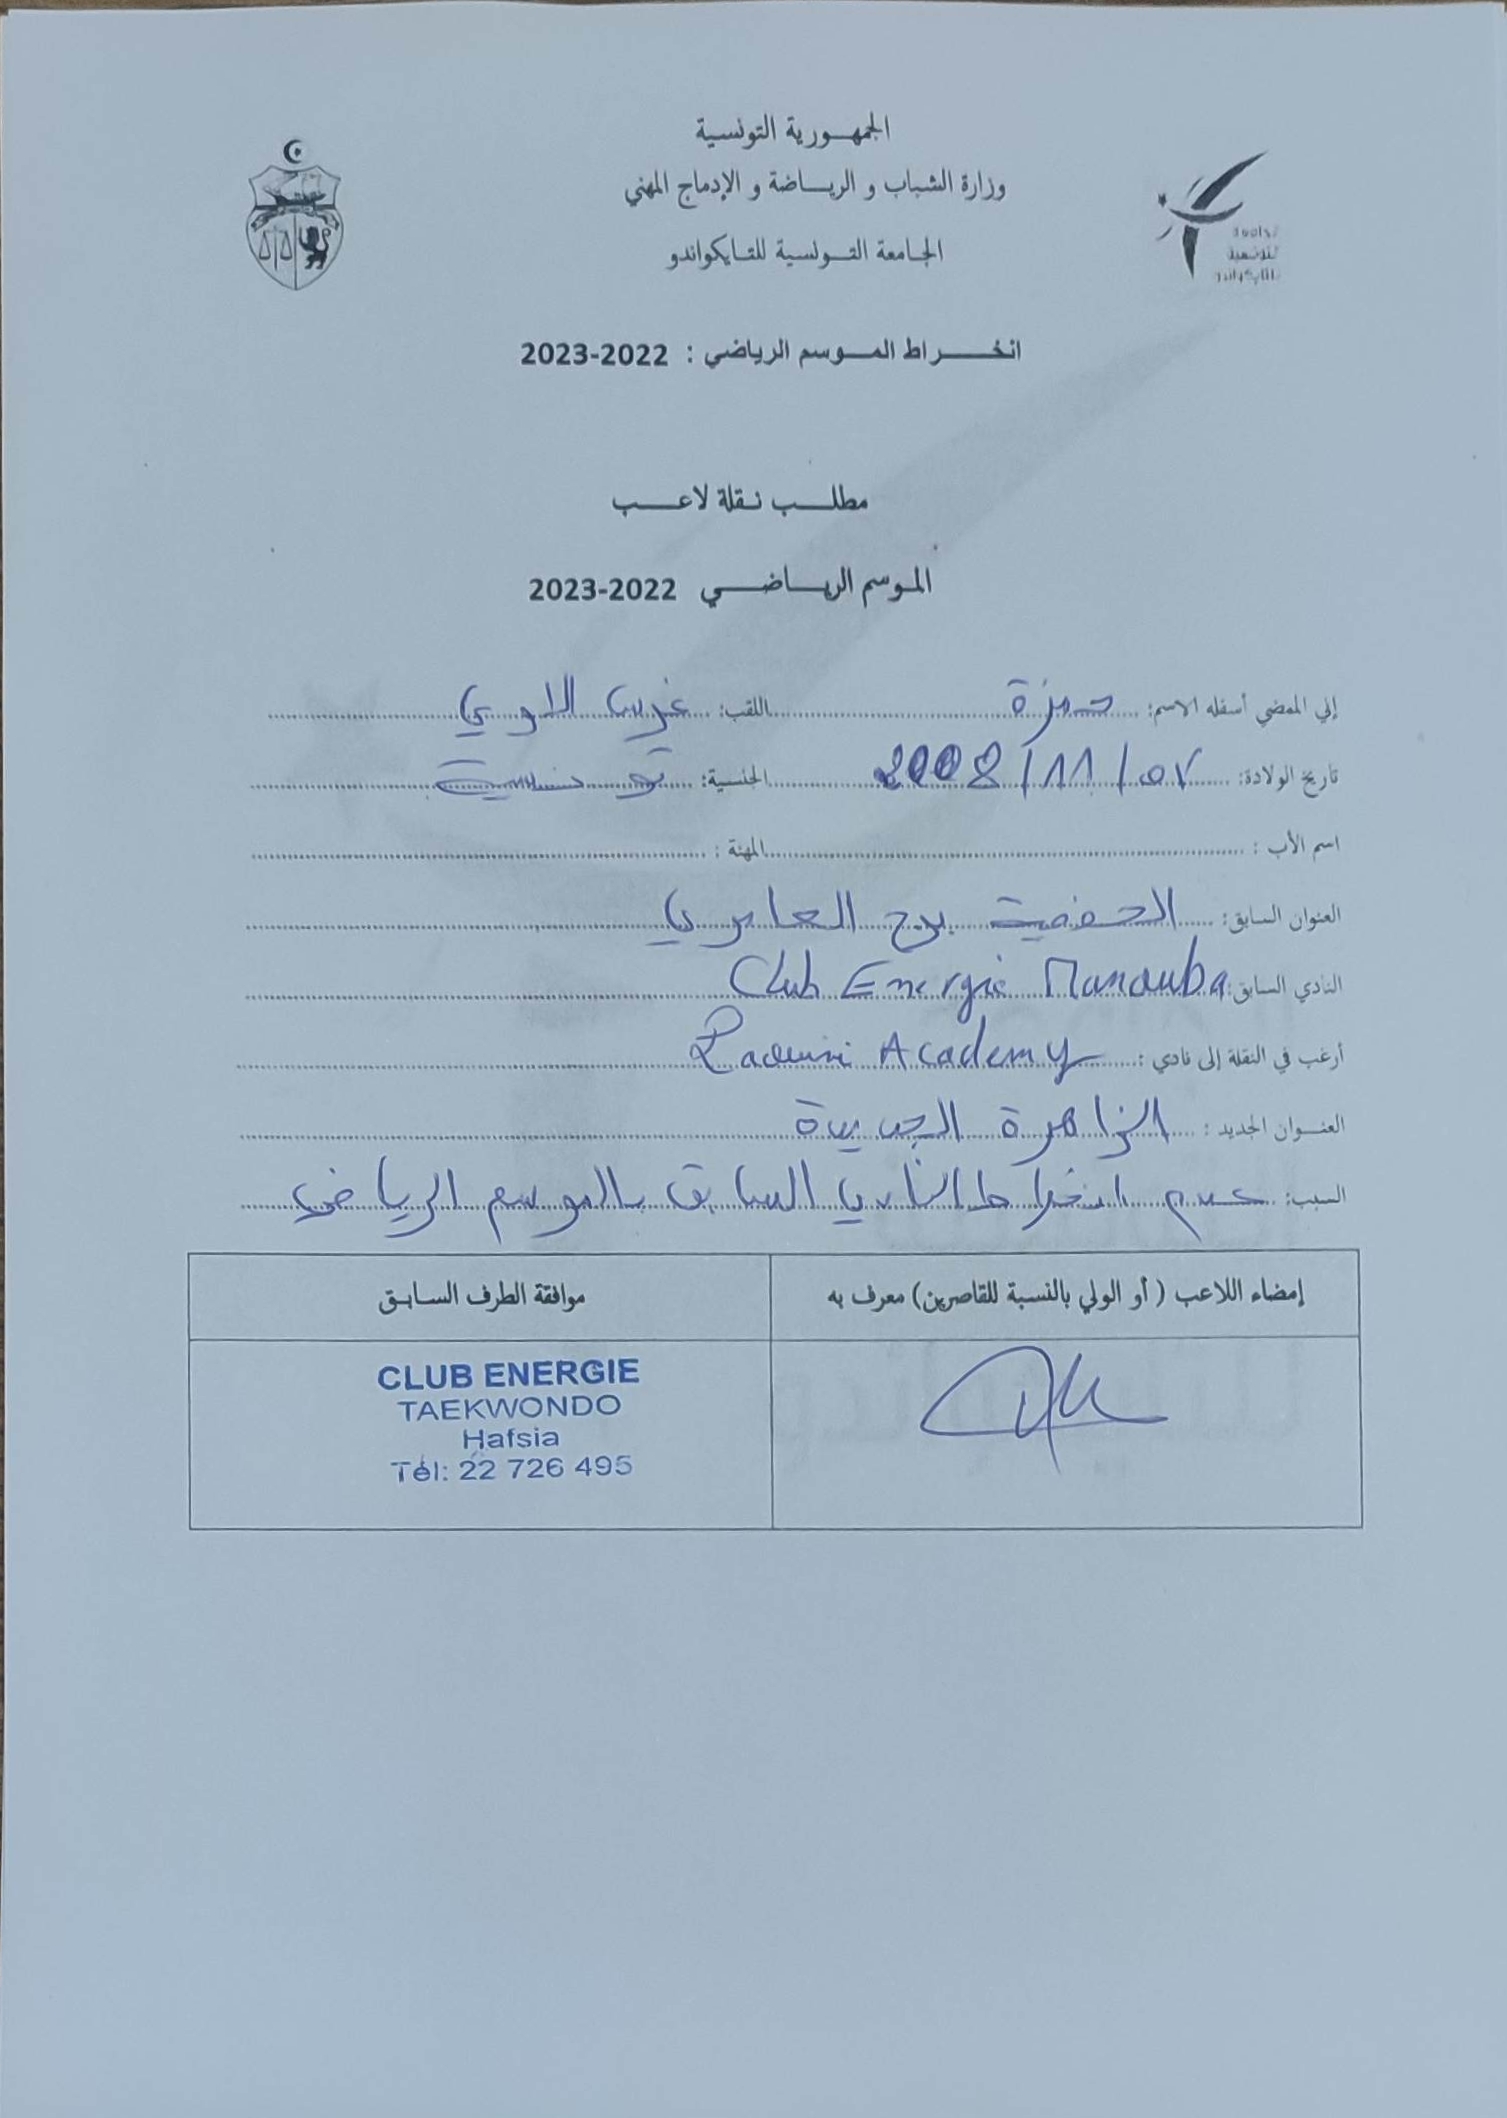 الجمهورية التونسية
وزارة الشباب و الرياضة و الإدماج المهني
الجامعة التونسية للتايكواندو
انخراط الموسم الرياضي : 2022-2023
مطلب نقلة لاعب
الموسم الرياضي 2022-2023
إني الممضي أسفله الاسم: حمزة اللقب:
تاريخ الولادة: 07/11/2008 الجنسية: تونسية
اسم الأب : المهنة :
العنوان السابق: الحفصية برج العامري
النادي السابق: Club Energie Manouba
أرغب في النقلة إلى نادي : Academy
العنوان الجديد : الزاهرة الجديدة
السبب: عدم انخراط النادي السابق بالموسم الرياضي
إمضاء اللاعب ( أو الولي بالنسبة للقاصرين) معرف به
موافقة الطرف السابق
CLUB ENERGIE
TAEKWONDO
Hafsia
Tél: 22 726 495